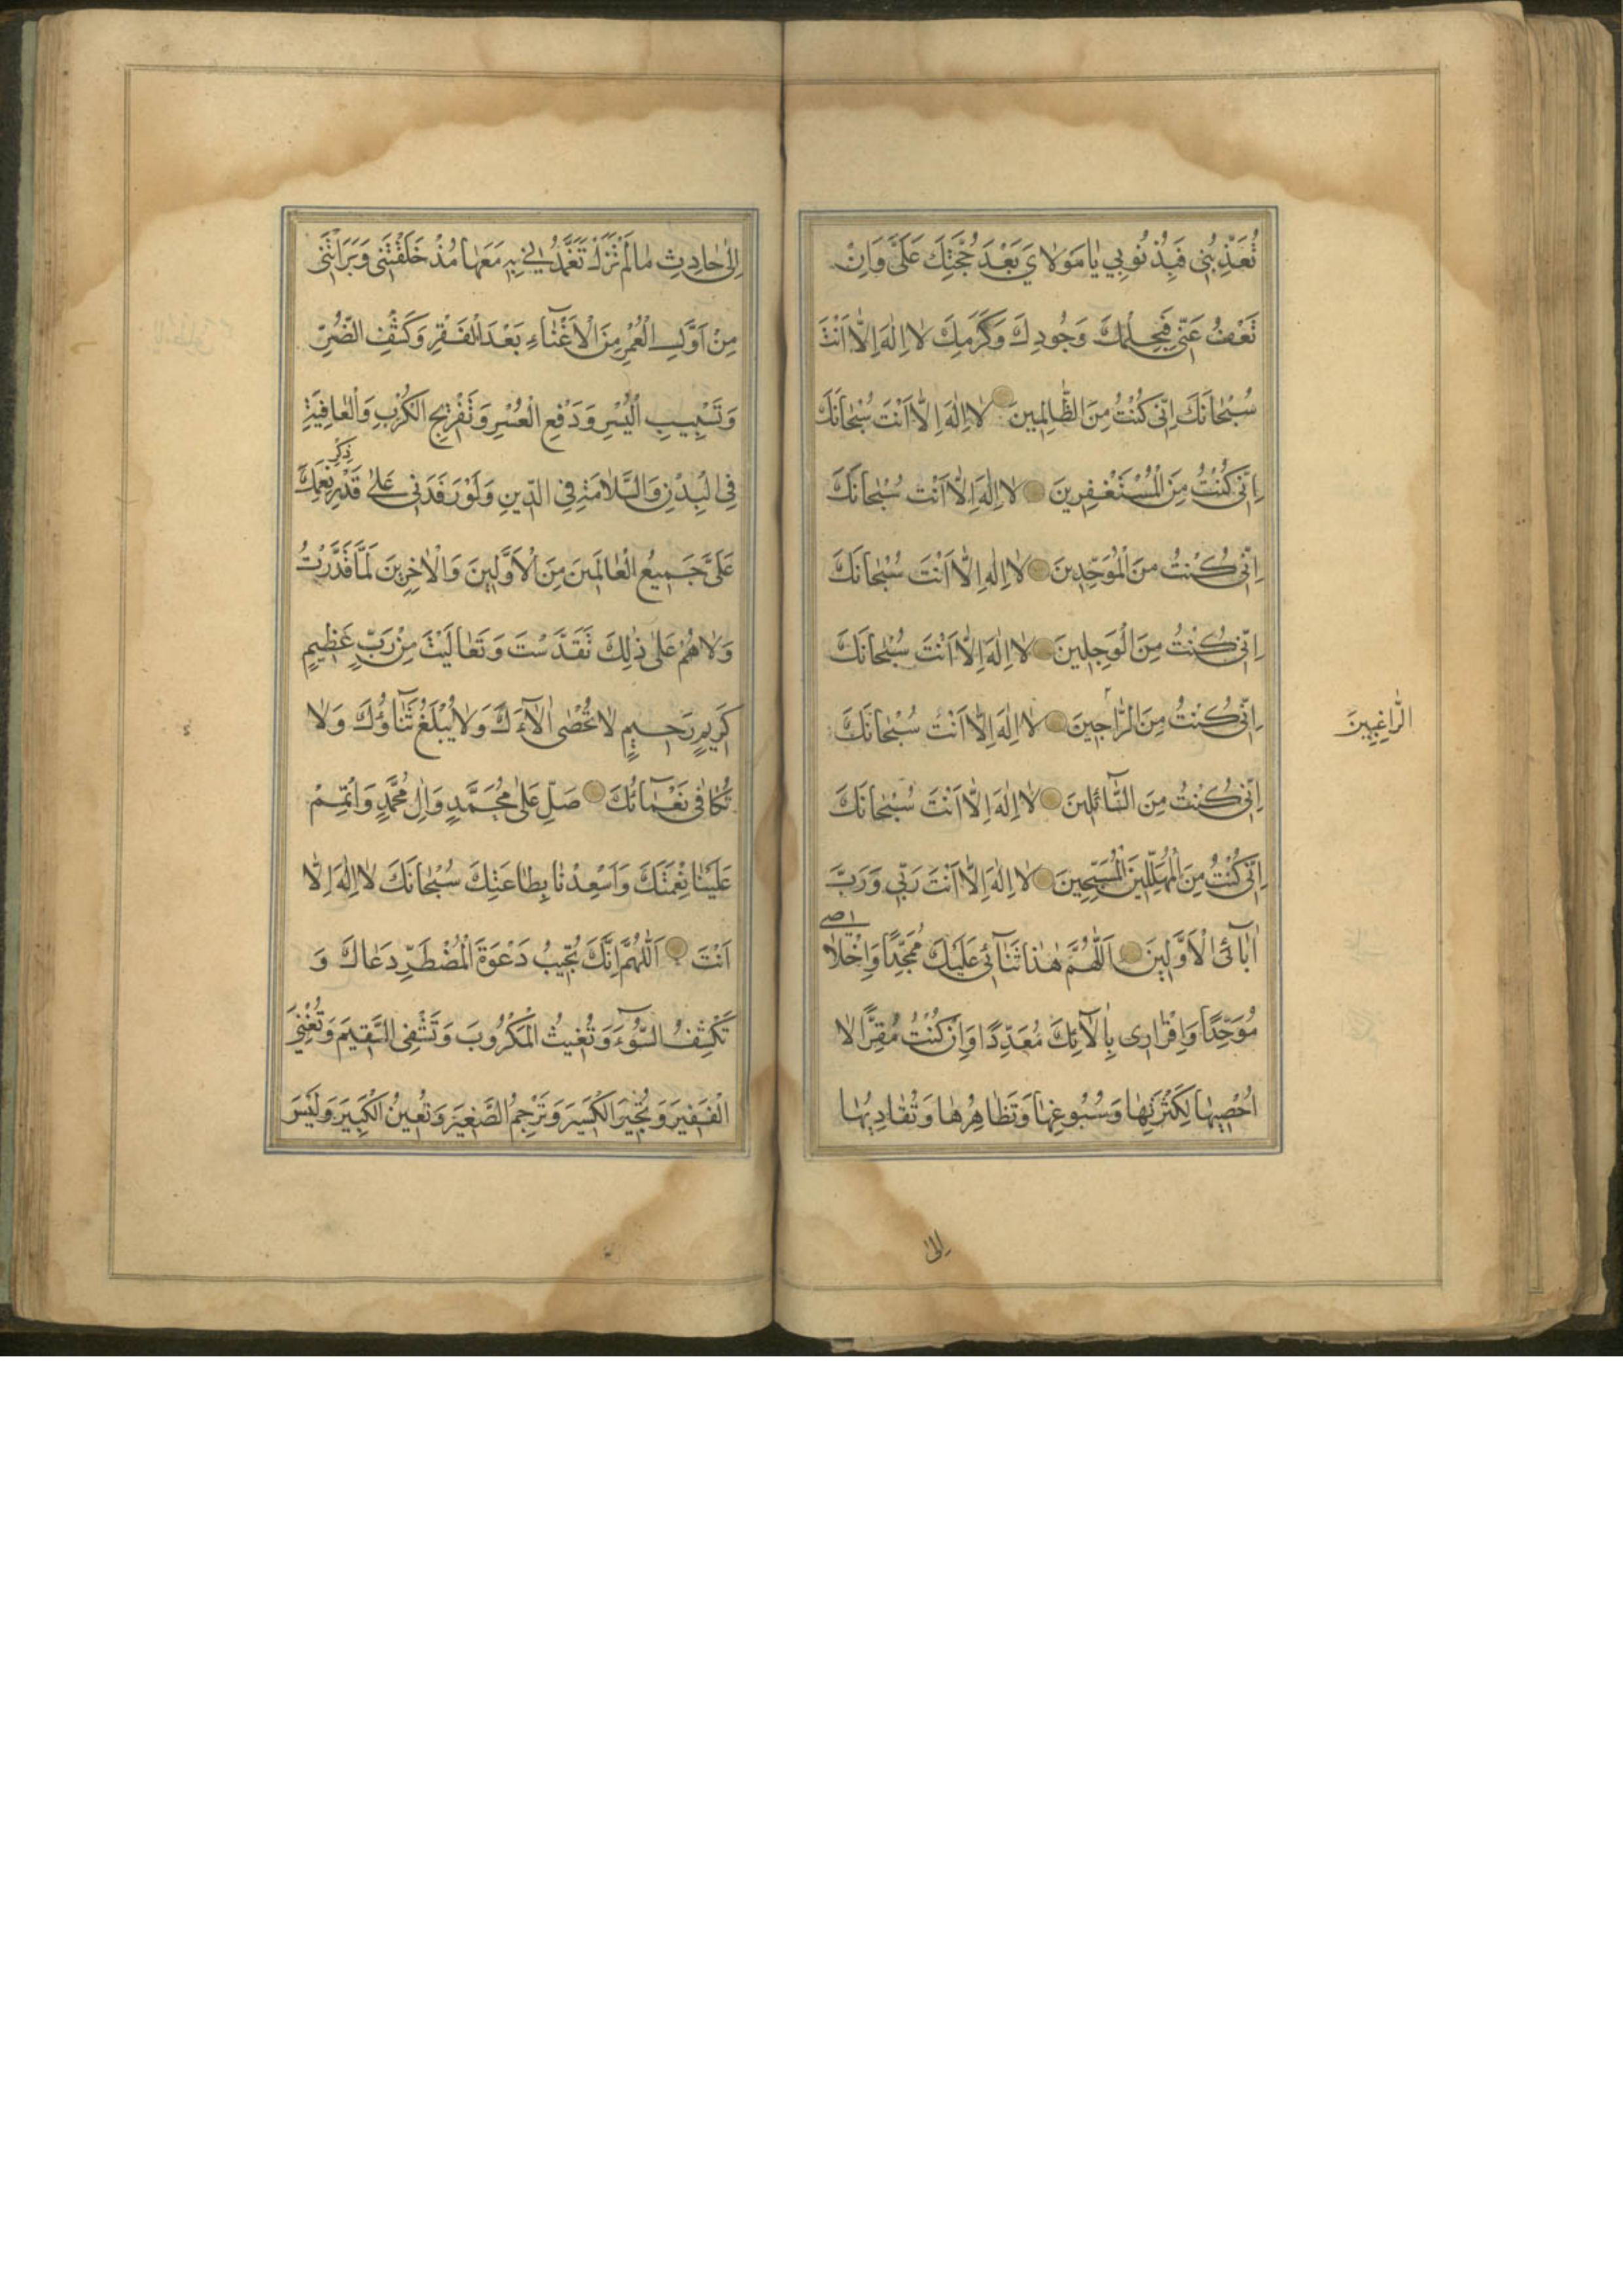 تُعَذِّبْنِي فَبِذُنُوبِي يَا مَوْلَايَ بَعْدَ حُجَّتِكَ عَلَيَّ وَاِنْ
تَعْفُ عَنِّي فَبِحِلْمِكَ وَجُودِكَ وَكَرَمِكَ لَا اِلٰهَ اِلَّا اَنْتَ
سُبْحَانَكَ اِنِّي كُنْتُ مِنَ الظَّالِمِينَ لَا اِلٰهَ اِلَّا اَنْتَ سُبْحَانَكَ
اِنِّي كُنْتُ مِنَ الْمُسْتَغْفِرِينَ لَا اِلٰهَ اِلَّا اَنْتَ سُبْحَانَكَ
اِنِّي كُنْتُ مِنَ الْمُوَحِّدِينَ لَا اِلٰهَ اِلَّا اَنْتَ سُبْحَانَكَ
اِنِّي كُنْتُ مِنَ الْوَجِلِينَ لَا اِلٰهَ اِلَّا اَنْتَ سُبْحَانَكَ
اِنِّي كُنْتُ مِنَ الرَّاجِينَ لَا اِلٰهَ اِلَّا اَنْتَ سُبْحَانَكَ
الرَّاغِبِينَ
اِنِّي كُنْتُ مِنَ السَّائِلِينَ لَا اِلٰهَ اِلَّا اَنْتَ سُبْحَانَكَ
اِنِّي كُنْتُ مِنَ الْمُهَلِّلِينَ الْمُسَبِّحِينَ لَا اِلٰهَ اِلَّا اَنْتَ رَبِّي وَرَبُّ
اٰبَآئِيَ الْاَوَّلِينَ اَللّٰهُمَّ هٰذَا ثَنَآئِي عَلَيْكَ مُمَجِّدًا وَاِخْلَاصِي
مُوَحِّدًا وَاِقْرَارِي بِاٰلَآئِكَ مُعَدِّدًا وَاِنْ كُنْتُ مُقِرًّا لَا
اُحْصِيهَا لِكَثْرَتِهَا وَسُبُوغِهَا وَتَظَاهُرِهَا وَتَقَادُمِهَا
اِلٰى
اِلٰى حَادِثٍ مَا لَمْ تَزَلْ تَتَغَمَّدُنِي بِهِ مَعَهَا مُذْ خَلَقْتَنِي وَبَرَاْتَنِي
مِنْ اَوَّلِ الْعُمْرِ مِنَ الْاِغْنَآءِ بَعْدَ الْفَقْرِ وَكَشْفِ الضُّرِّ
وَتَسْبِيبِ الْيُسْرِ وَدَفْعِ الْعُسْرِ وَتَفْرِيجِ الْكَرْبِ وَالْعَافِيَةِ
فِي الْبَدَنِ وَالسَّلَامَةِ فِي الدِّينِ وَلَوْ رَفَدَنِي عَلٰى قَدْرِ ذِكْرِ نِعَمِكَ
عَلَيَّ جَمِيعُ الْعَالَمِينَ مِنَ الْاَوَّلِينَ وَالْاٰخِرِينَ لَمَا قَدَرْتُ
وَلَا هُمْ عَلٰى ذٰلِكَ تَقَدَّسْتَ وَتَعَالَيْتَ مِنْ رَبٍّ عَظِيمٍ
كَرِيمٍ رَحِيمٍ لَا تُحْصٰى اٰلَآءُكَ وَلَا يُبْلَغُ ثَنَآؤُكَ وَلَا
تُكَافٰى نَعْمَآئُكَ صَلِّ عَلٰى مُحَمَّدٍ وَاٰلِ مُحَمَّدٍ وَاَتْمِمْ
عَلَيْنَا نِعْمَتَكَ وَاَسْعِدْنَا بِطَاعَتِكَ سُبْحَانَكَ لَا اِلٰهَ اِلَّا
اَنْتَ اَللّٰهُمَّ اِنَّكَ تُجِيبُ دَعْوَةَ الْمُضْطَرِّ دَعَاكَ وَ
تَكْشِفُ السُّوٓءَ وَتُغِيثُ الْمَكْرُوبَ وَتَشْفِي السَّقِيمَ وَتُغْنِي
الْفَقِيرَ وَتُجْبِرُ الْكَسِيرَ وَتَرْحَمُ الصَّغِيرَ وَتُعِينُ الْكَبِيرَ وَلَيْسَ